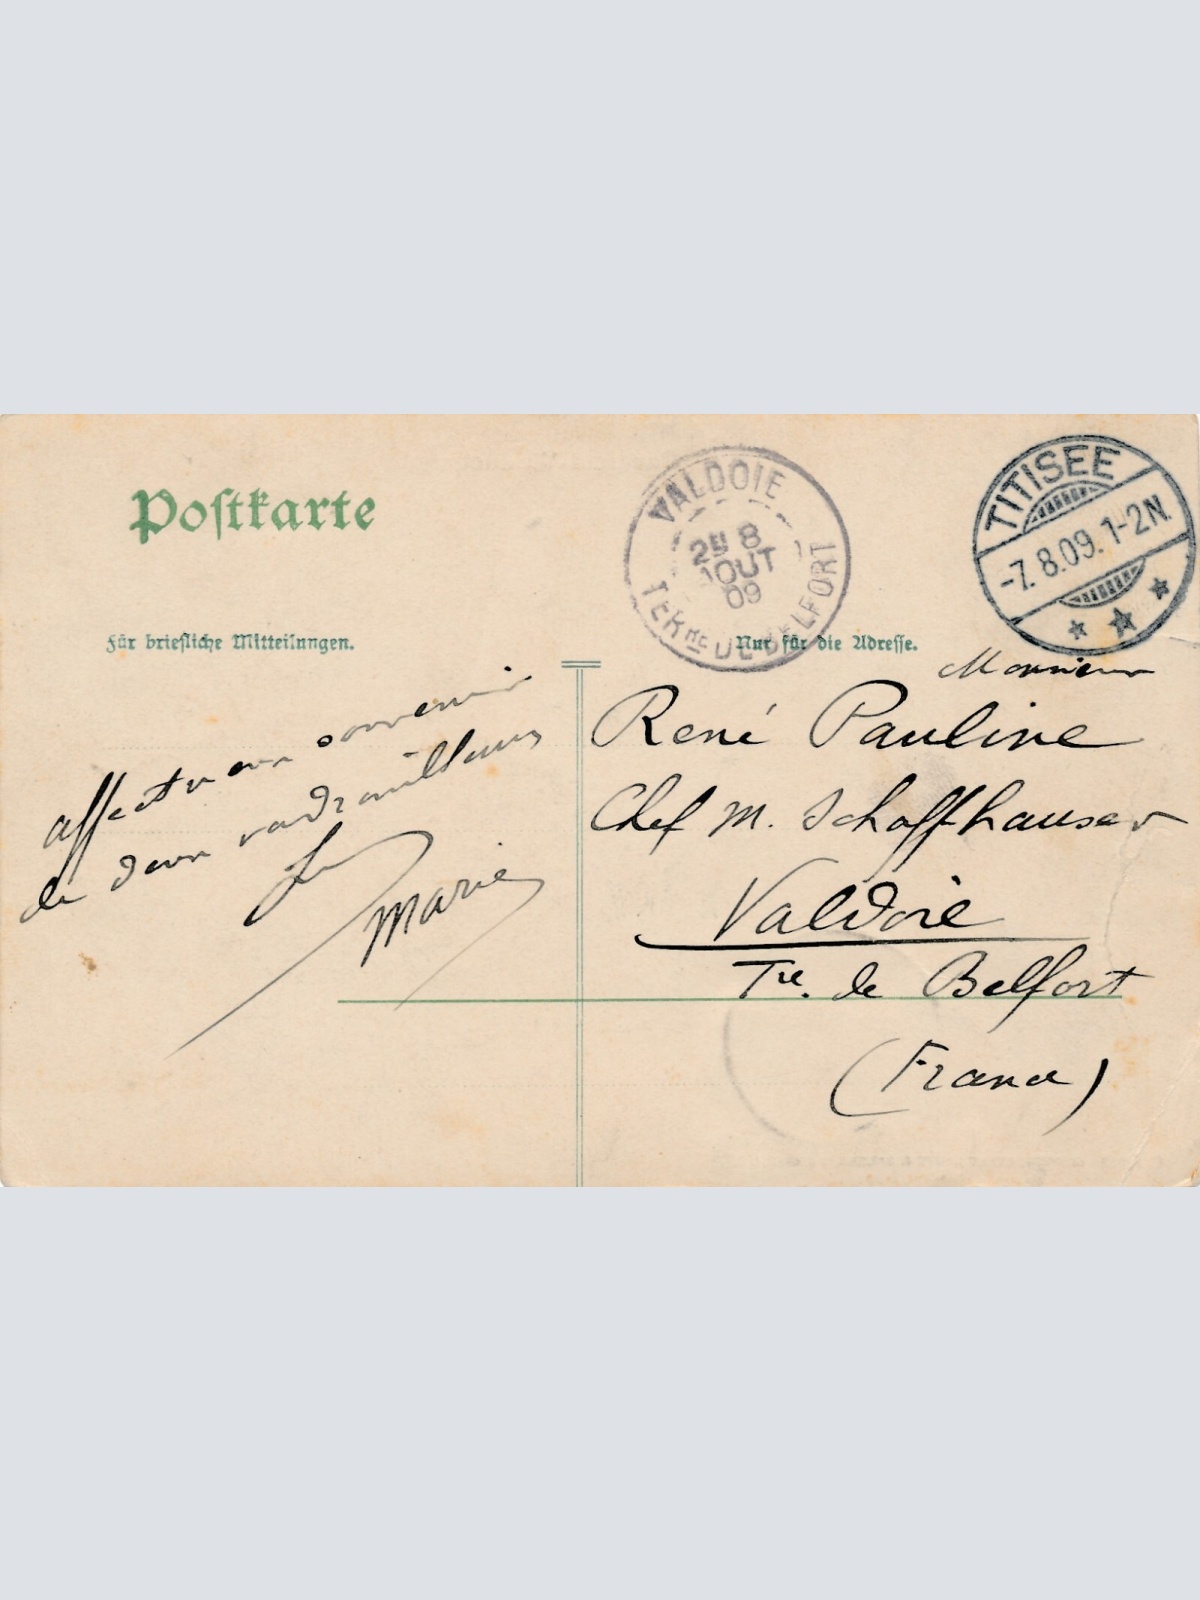 Postkarte
VALDOIE
2E 8
AOUT
09
TERRRE DE BELFORT
TITISEE
-7.8.09.1-2N.
Für briefliche Mitteilungen.
Nur für die Adresse.
affectueux souvenir
de deux vadrouilleurs
Marie
Monsieur
René Pauline
Chef M. Schoffhauser
Valdoie
Tre. de Belfort
(France)